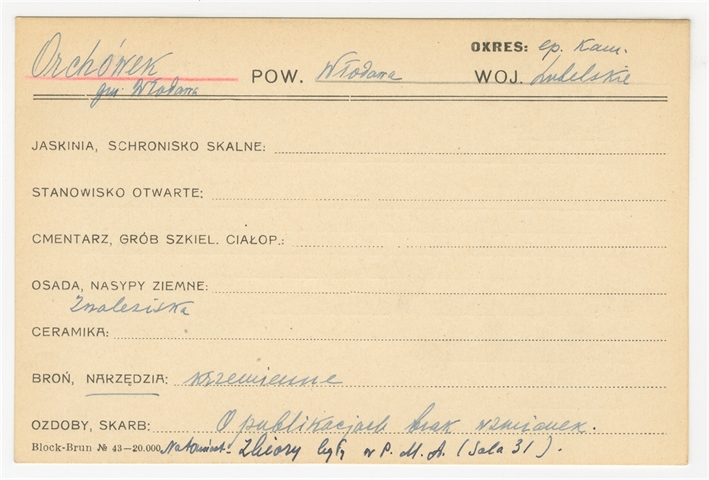 OKRES: ep. Kam.
Orchówek POW. Włodawa WOJ. Lubelskie
gm. Włodawa
JASKINIA, SCHRONISKO SKALNE:
STANOWISKO OTWARTE:
CMENTARZ, GRÓB SZKIEL. CIAŁOP.:
OSADA, NASYPY ZIEMNE:
Znaleziska
CERAMIKA:
BROŃ, NARZĘDZIA: krzemienne
OZDOBY, SKARB: O publikacjach brak wzmianek.
Block-Brun № 43—20.000 Natomiast - Zbiory były w P. M. A. (Sala 31).